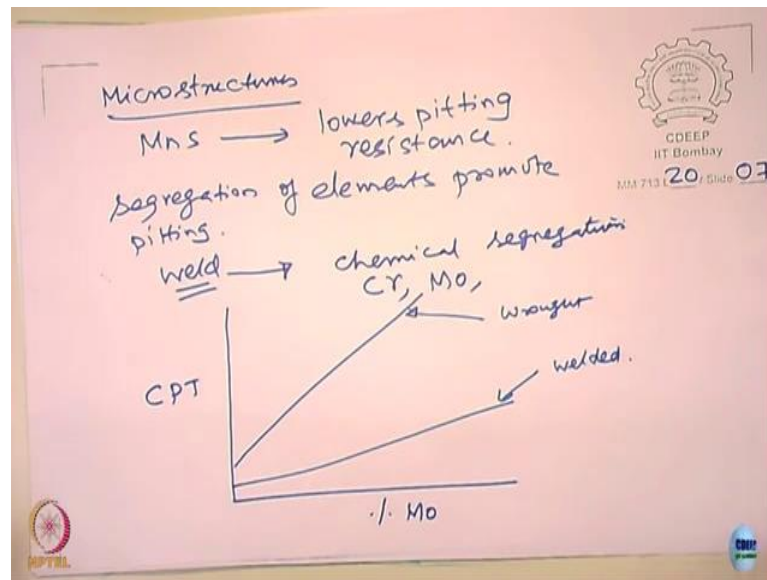 Microstructures
MnS → lowers pitting
resistance.
segregation of elements promote
pitting.
weld → chemical segregation
Cr, Mo,
wrought
welded.
CPT
·/. Mo
CDEEP
IIT Bombay
MM 713 L 20 / Slide 07
NPTEL
CDEEP